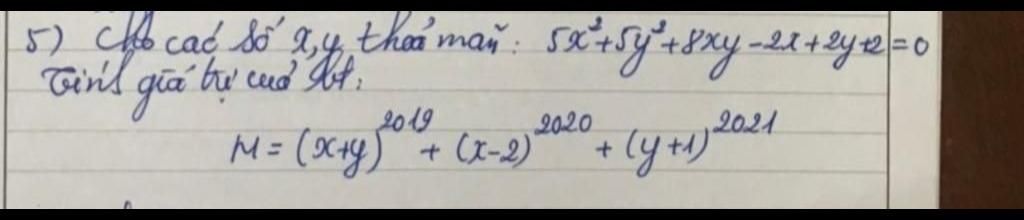 5) Cho các số x,y thoả mãn: 5x²+5y²+8xy-2x+2y+2=0
Tính giá trị của bt:
M = (x+y)²⁰¹⁹ + (x-2)²⁰²⁰ + (y+1)²⁰²¹